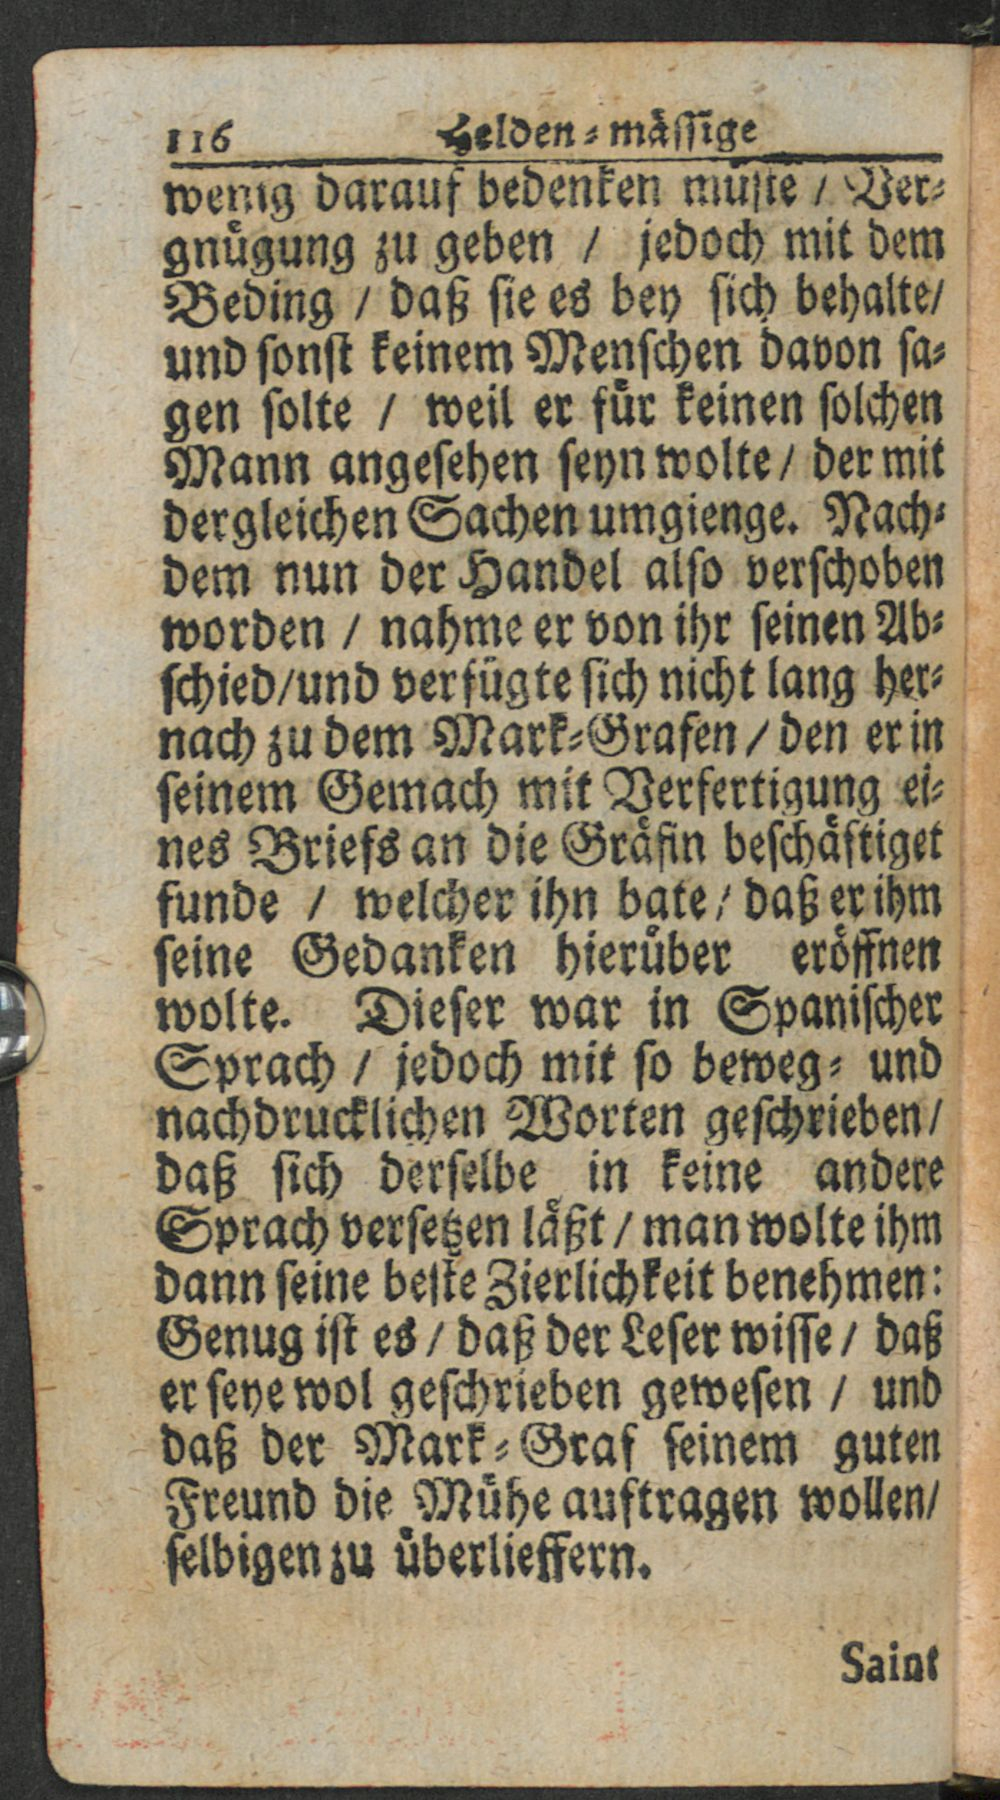 116 Helden-mässige
wenig darauf bedenken müste / Ver-
gnügung zu geben / jedoch mit dem
Beding / daß sie es bey sich behalte/
und sonst keinem Menschen davon sa-
gen solte / weil er für keinen solchen
Mann angesehen seyn wolte / der mit
dergleichen Sachen umgienge. Nach-
dem nun der Handel also verschoben
worden / nahme er von ihr seinen Ab-
schied/und verfügte sich nicht lang her-
nach zu dem Mark-Grafen / den er in
seinem Gemach mit Verfertigung ei-
nes Briefs an die Gräfin beschäftiget
funde / welcher ihn bate / daß er ihm
seine Gedanken hierüber eröffnen
wolte. Dieser war in Spanischer
Sprach / jedoch mit so beweg- und
nachdrucklichen Worten geschrieben/
daß sich derselbe in keine andere
Sprach versetzen läßt / man wolte ihm
dann seine beste Zierlichkeit benehmen:
Genug ist es / daß der Leser wisse / daß
er seye wol geschrieben gewesen / und
daß der Mark-Graf seinem guten
Freund die Mühe auftragen wollen/
selbigen zu überlieffern.
Saint